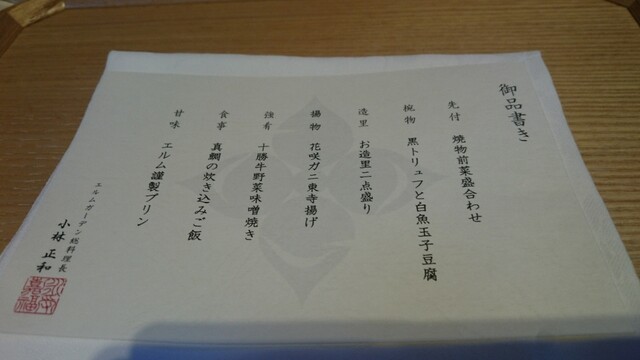 御品書き
先付 焼物前菜盛合わせ
椀物 黒トリュフと白魚玉子豆腐
造里 お造里二点盛り
揚物 花咲ガニ東寺揚げ
強肴 十勝牛野菜味噌焼き
食事 真鯛の炊き込みご飯
甘味 エルム謹製プリン
エルムガーデン総料理長
小林 正和